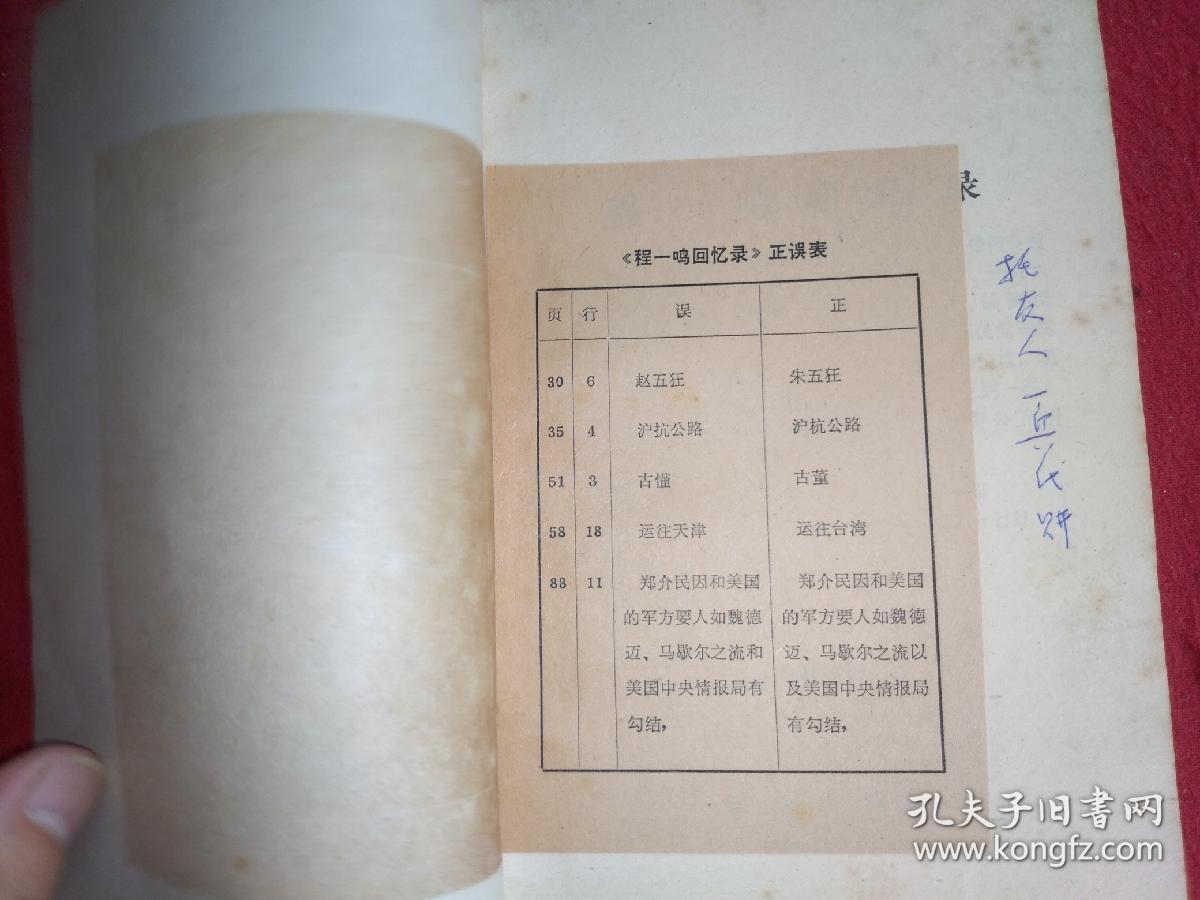 录
《程一鸣回忆录》正误表
页 行 误 正
30 6 赵五狂 朱五狂
35 4 沪抗公路 沪杭公路
51 3 古懂 古董
58 18 运往天津 运往台湾
88 11 郑介民因和美国 郑介民因和美国
的军方要人如魏德 的军方要人如魏德
迈、马歇尔之流和 迈、马歇尔之流以
美国中央情报局有 及美国中央情报局
勾结， 有勾结，
托友人
孔夫子旧书网
www.kongfz.com